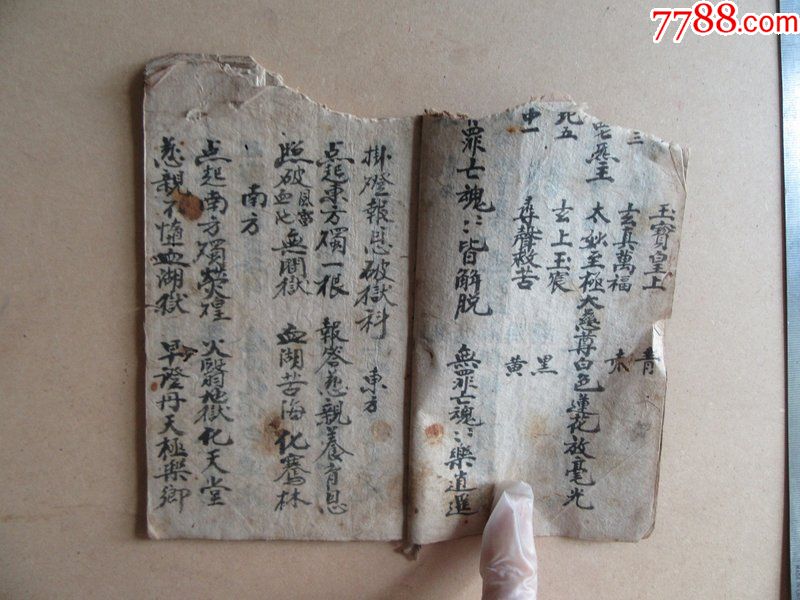 7788.com
玉寶皇上 青
三 玄真萬福 赤
太妙至極大慈尊白色蓮花放毫光
死五 玄上玉宸 黑
中一 尋聲救苦 黄
罪亡魂〻皆解脱 無罪亡魂〻樂逍遥
掛磴報恩破獄科 東方
点起東方燭一根 報答慈親養育恩
照破風雷血池無間獄 血湖苦海化騫林
南方
点起南方燭熒煌 火翳地獄化天堂
慈親不墮血湖獄 早證丹天極樂鄉